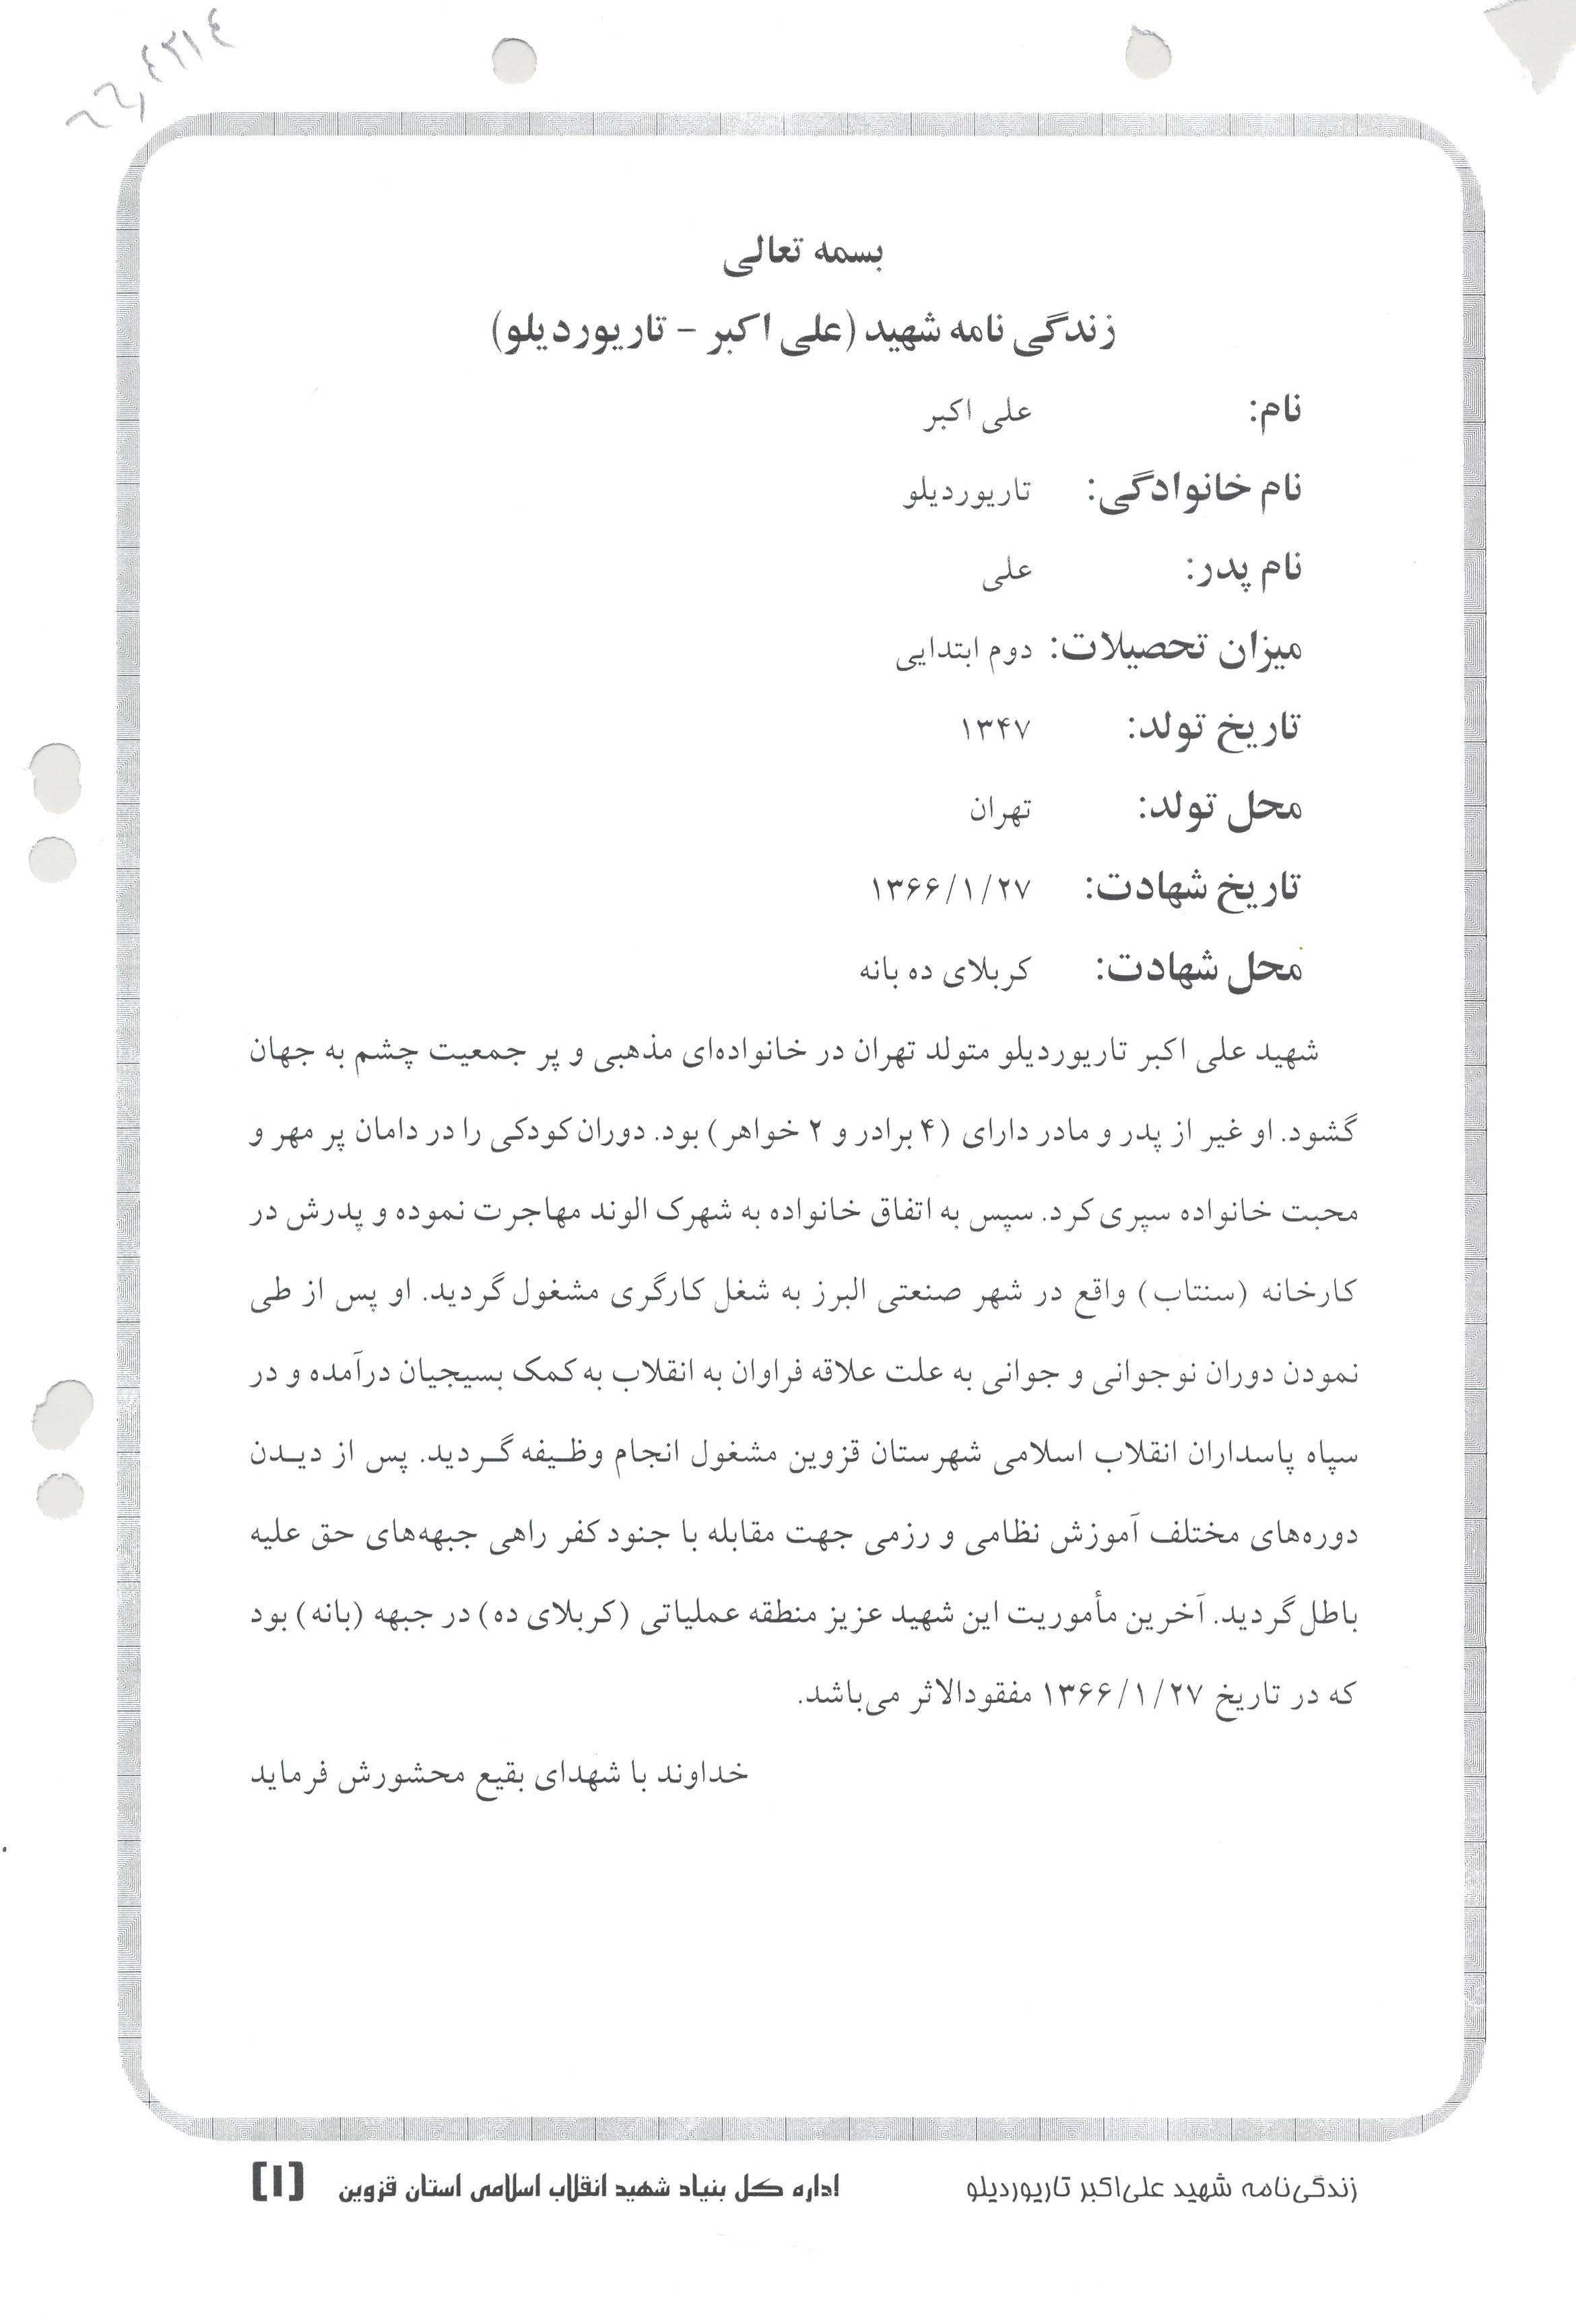 بسمه تعالی
زندگی نامه شهید (علی اکبر - تاریوردیلو)
نام: علی اکبر
نام خانوادگی: تاریوردیلو
نام پدر: علی
میزان تحصیلات: دوم ابتدایی
تاریخ تولد: ۱۳۴۷
محل تولد: تهران
تاریخ شهادت: ۱۳۶۶/۱/۲۷
محل شهادت: کربلای ده بانه
شهید علی اکبر تاریوردیلو متولد تهران در خانواده‌ای مذهبی و پر جمعیت چشم به جهان
گشود. او غیر از پدر و مادر دارای (۴ برادر و ۲ خواهر) بود. دوران کودکی را در دامان پر مهر و
محبت خانواده سپری کرد. سپس به اتفاق خانواده به شهرک الوند مهاجرت نموده و پدرش در
کارخانه (سنتاب) واقع در شهر صنعتی البرز به شغل کارگری مشغول گردید. او پس از طی
نمودن دوران نوجوانی و جوانی به علت علاقه فراوان به انقلاب به کمک بسیجیان درآمده و در
سپاه پاسداران انقلاب اسلامی شهرستان قزوین مشغول انجام وظیفه گردید. پس از دیدن
دوره‌های مختلف آموزش نظامی و رزمی جهت مقابله با جنود کفر راهی جبهه‌های حق علیه
باطل گردید. آخرین مأموریت این شهید عزیز منطقه عملیاتی (کربلای ده) در جبهه (بانه) بود
که در تاریخ ۱۳۶۶/۱/۲۷ مفقودالاثر می‌باشد.
خداوند با شهدای بقیع محشورش فرماید
زندگی‌نامه شهید علی‌اکبر تاریوردیلو اداره کل بنیاد شهید انقلاب اسلامی استان قزوین [۱]